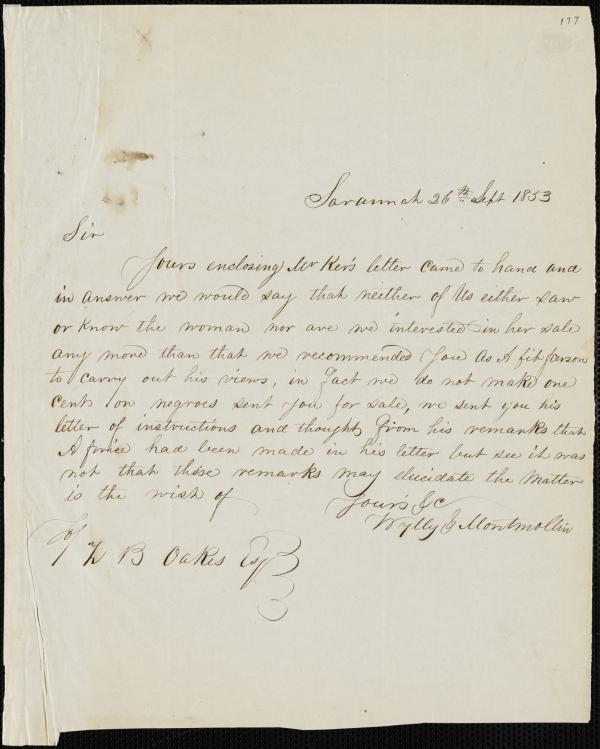 177
Savannah 26th Sept 1853
Sir
Yours enclosing Mr Ker's letter came to hand and
in answer we would say that neither of us either saw
or know the woman nor are we interested in her sale
any more than that we recommended you as A fit person
to carry out his views, in fact we do not make one
cent on negroes sent you for sale, we sent you his
letter of instructions and thought from his remarks that
A price had been made in his letter but see it was
not that these remarks may elucidate the matter
is the wish of Yours &c
Wylly & Montmollin
To Z B Oakes Esq